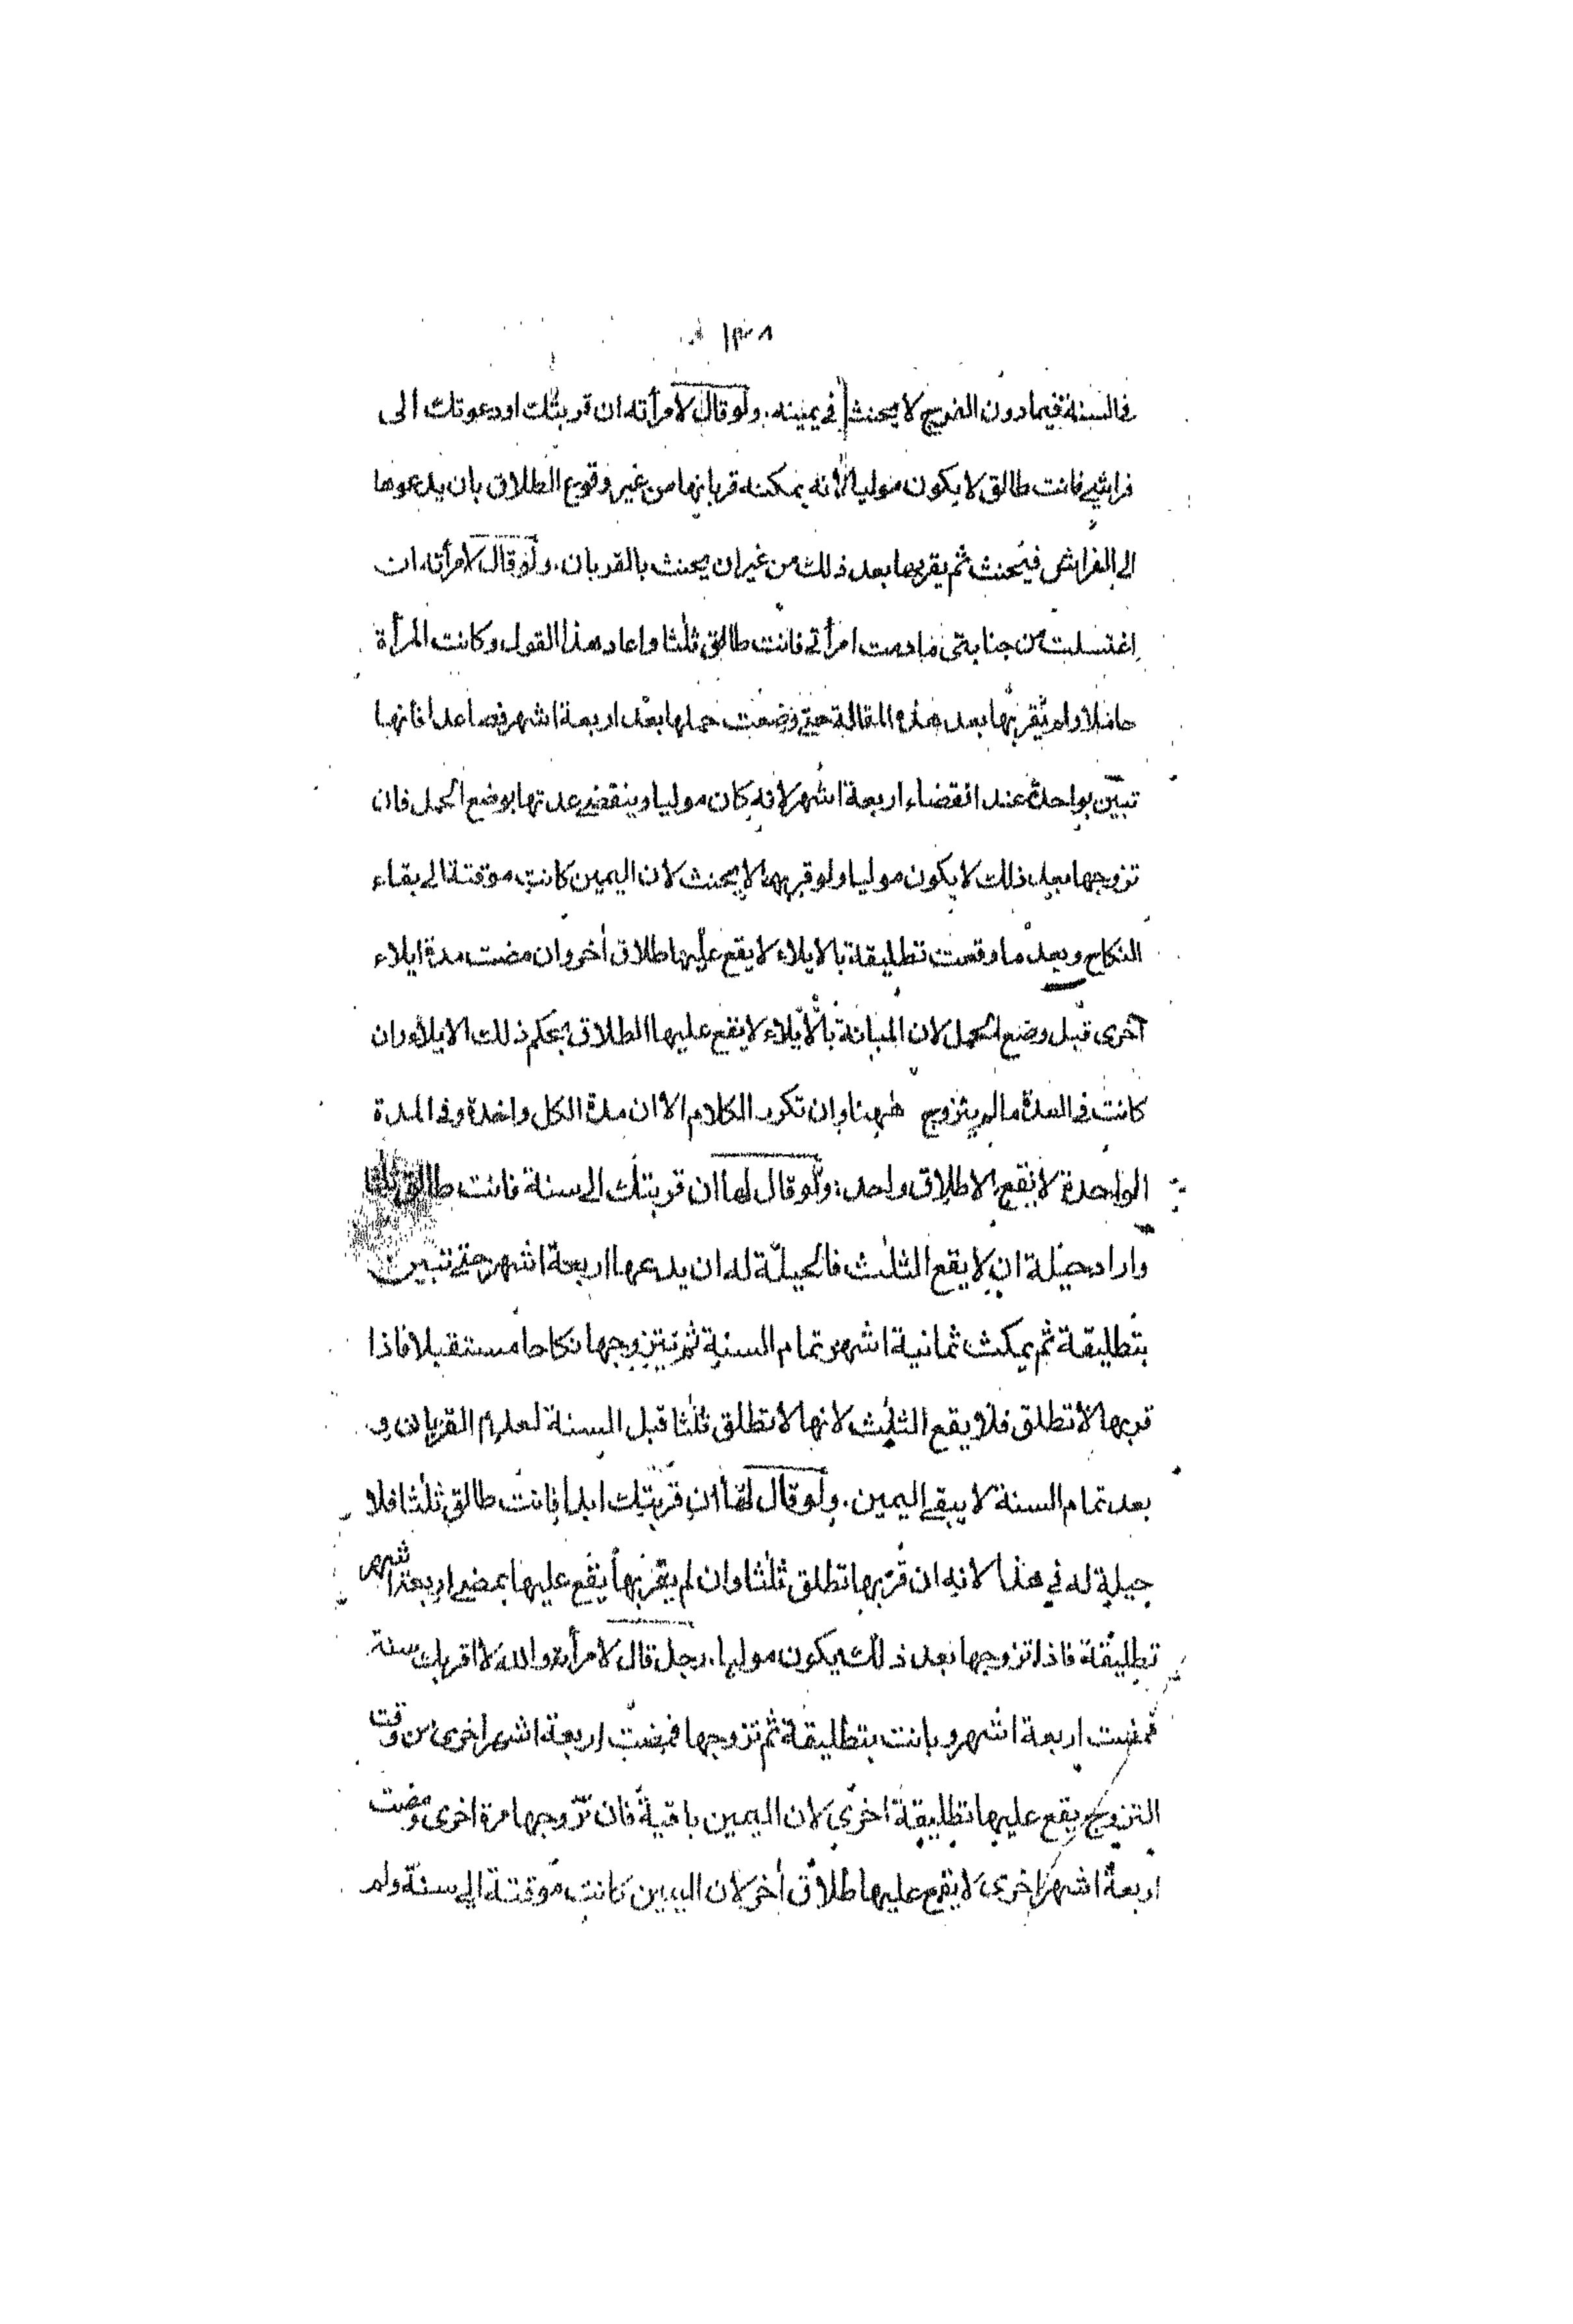 ١٣٨
في السنة فيما دون الفرج لا يحنث في يمينه . ولو قال لامرأته ان قربتك او دعوتك الى
فراشي فانت طالق لا يكون موليا لانه يمكنه قربانها من غير وقوع الطلاق بان يدعوها
الى الفراش فيحنث ثم يقربها بعد ذلك من غير ان يحنث بالقربان . ولو قال لامرأته ان
اغتسلت من جنابتى ما دمت امرأتي فانت طالق ثلثا واعاد هذا القول وكانت المرأة
حاملا ولم يقربها بعد هذه المقالة حتى وضعت حملها بعد اربعة اشهر فصاعدا فانها
تبين بواحدة عند انقضاء اربعة اشهر لانه كان موليا وينقضي عدتها بوضع الحمل فان
تزوجها بعد ذلك لا يكون موليا ولو قربها لا يحنث لان اليمين كانت موقتة الى بقاء
النكاح وبعد ما وقعت تطليقة بالايلاء لا يقع عليها طلاق أخر وان مضت مدة ايلاء
آخرى قبل وضع الحمل لان المبانة بالايلاء لا يقع عليها الطلاق بحكم ذلك الايلاء وان
كانت في العدة ما لم يتزوج ههنا وان تكرر الكلام الا ان مدة الكل واحدة وفي المدة
الواحدة لا يقع الا طلاق واحد : ولو قال لها ان قربتك الى سنة فانت طالق ثلثا
واراد حيلة ان لا يقع الثلث فالحيلة له ان يدعها اربعة اشهر حتى تبين
بتطليقة ثم يمكث ثمانية اشهر تمام السنة ثم يتزوجها نكاحا مستقبلا فاذا
قربها لا تطلق فلا يقع الثلث لانها لا تطلق ثلثا قبل السنة لعدم القربان و
بعد تمام السنة لا يبقى اليمين . ولو قال لها ان قربتك ابدا فانت طالق ثلثا فلا
حيلة له في هذا لانه ان قربها تطلق ثلثا وان لم يقربها يقع عليها بمضي اربعة اشهر
تطليقة فاذا تزوجها بعد ذلك يكون موليا . رجل قال لامرأته والله لا اقربك سنة
فمضت اربعة اشهر وبانت بتطليقة ثم تزوجها فمضت اربعة اشهر اخرى من وقت
التزوج يقع عليها تطليقة اخرى لان اليمين باقية فان تزوجها مرة اخرى ومضت
اربعة اشهر اخرى لا يقع عليها طلاق أخر لان اليمين كانت موقتة الى سنة ولم